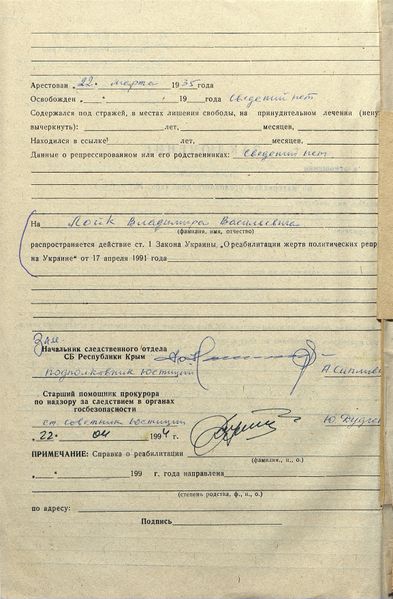 Арестован „22„ марта 1935 года
Освобожден „ " 19 года сведений нет
Содержался под стражей, в местах лишения свободы, на принудительном лечении (нену
вычеркнуть): лет, месяцев,
Находился в ссылке лет, месяцев,
Данные о репрессированном или его родственниках: Сведений нет
На Владимира Васильевича
(фамилия, имя, отчество)
распространяется действие ст. 1 Закона Украины „О реабилитации жертв политических репр
на Украине" от 17 апреля 1991 года
Зам
Начальник следственного отдела
СБ Республики Крым
подполковник юстиции
Старший помощник прокурора
по надзору за следствием в органах
госбезопасности
ст. советник юстиции
22. 04 1994 г.
ПРИМЕЧАНИЕ: Справка о реабилитации
(фамилия, и., о.)
„ " 199 г. года направлена
(степень родства, ф., и., о.)
по адресу:
Подпись